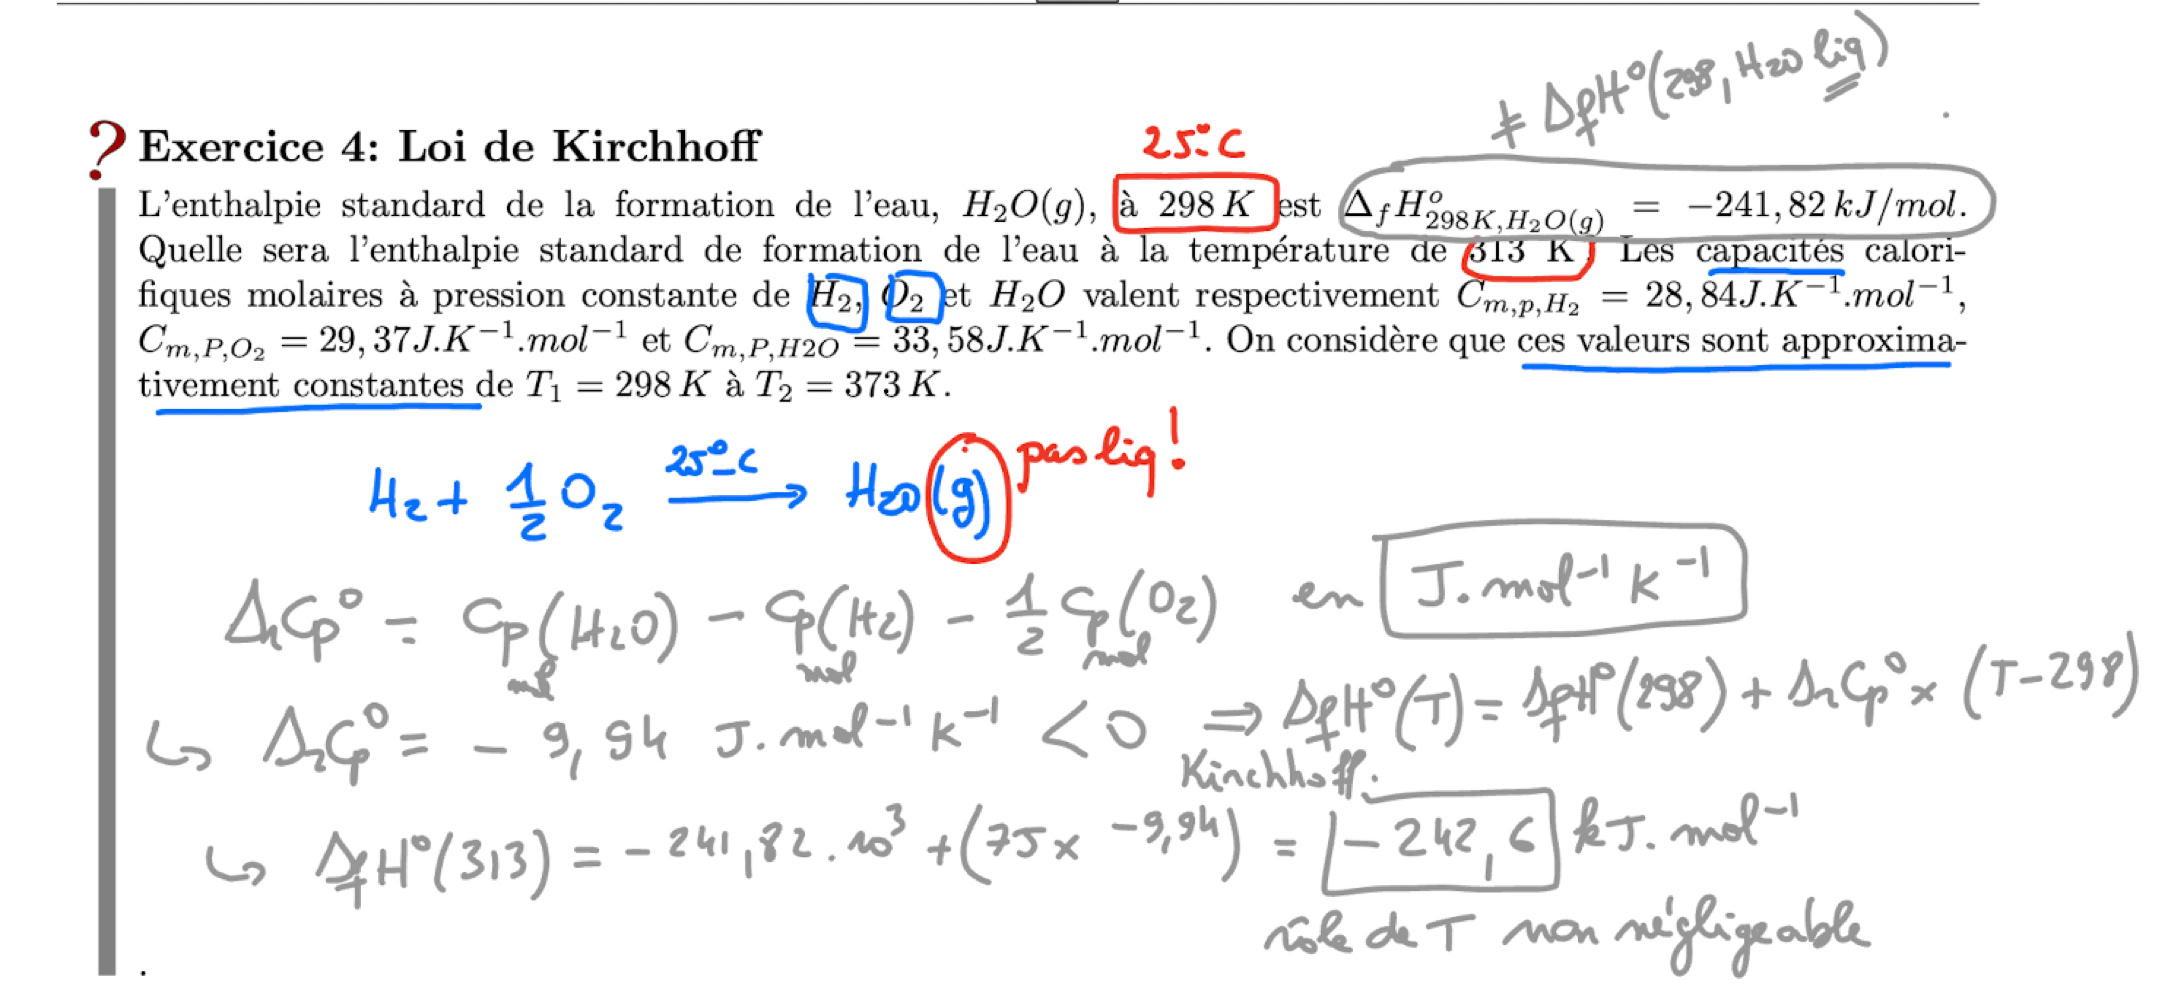 ≠ ΔfH°(298, H2O liq)
? Exercice 4: Loi de Kirchhoff
25°C
L'enthalpie standard de la formation de l'eau, H₂O(g), à 298 K est ΔfH°298K,H₂O(g) = −241, 82 kJ/mol.
Quelle sera l'enthalpie standard de formation de l'eau à la température de 313 K. Les capacités calori-
fiques molaires à pression constante de H₂, O₂ et H₂O valent respectivement Cm,p,H₂ = 28, 84J.K⁻¹.mol⁻¹,
Cm,P,O₂ = 29, 37J.K⁻¹.mol⁻¹ et Cm,P,H2O = 33, 58J.K⁻¹.mol⁻¹. On considère que ces valeurs sont approxima-
tivement constantes de T₁ = 298 K à T₂ = 373 K.
H2 + 1/2 O2 25°C → H2O(g) pas liq!
ΔrCp° = Cp mol (H2O) − Cp mol (H2) − 1/2 Cp mol (O2) en J.mol⁻¹ K⁻¹
↪ ΔrCp° = − 9,94 J.mol⁻¹ K⁻¹ < 0 ⇒ ΔfH°(T) = ΔfH°(298) + ΔrCp° × (T−298)
Kirchhoff.
↪ ΔfH°(313) = − 241,82.10³ + (75 × −9,94) = −242,6 kJ.mol⁻¹
rôle de T non négligeable
.